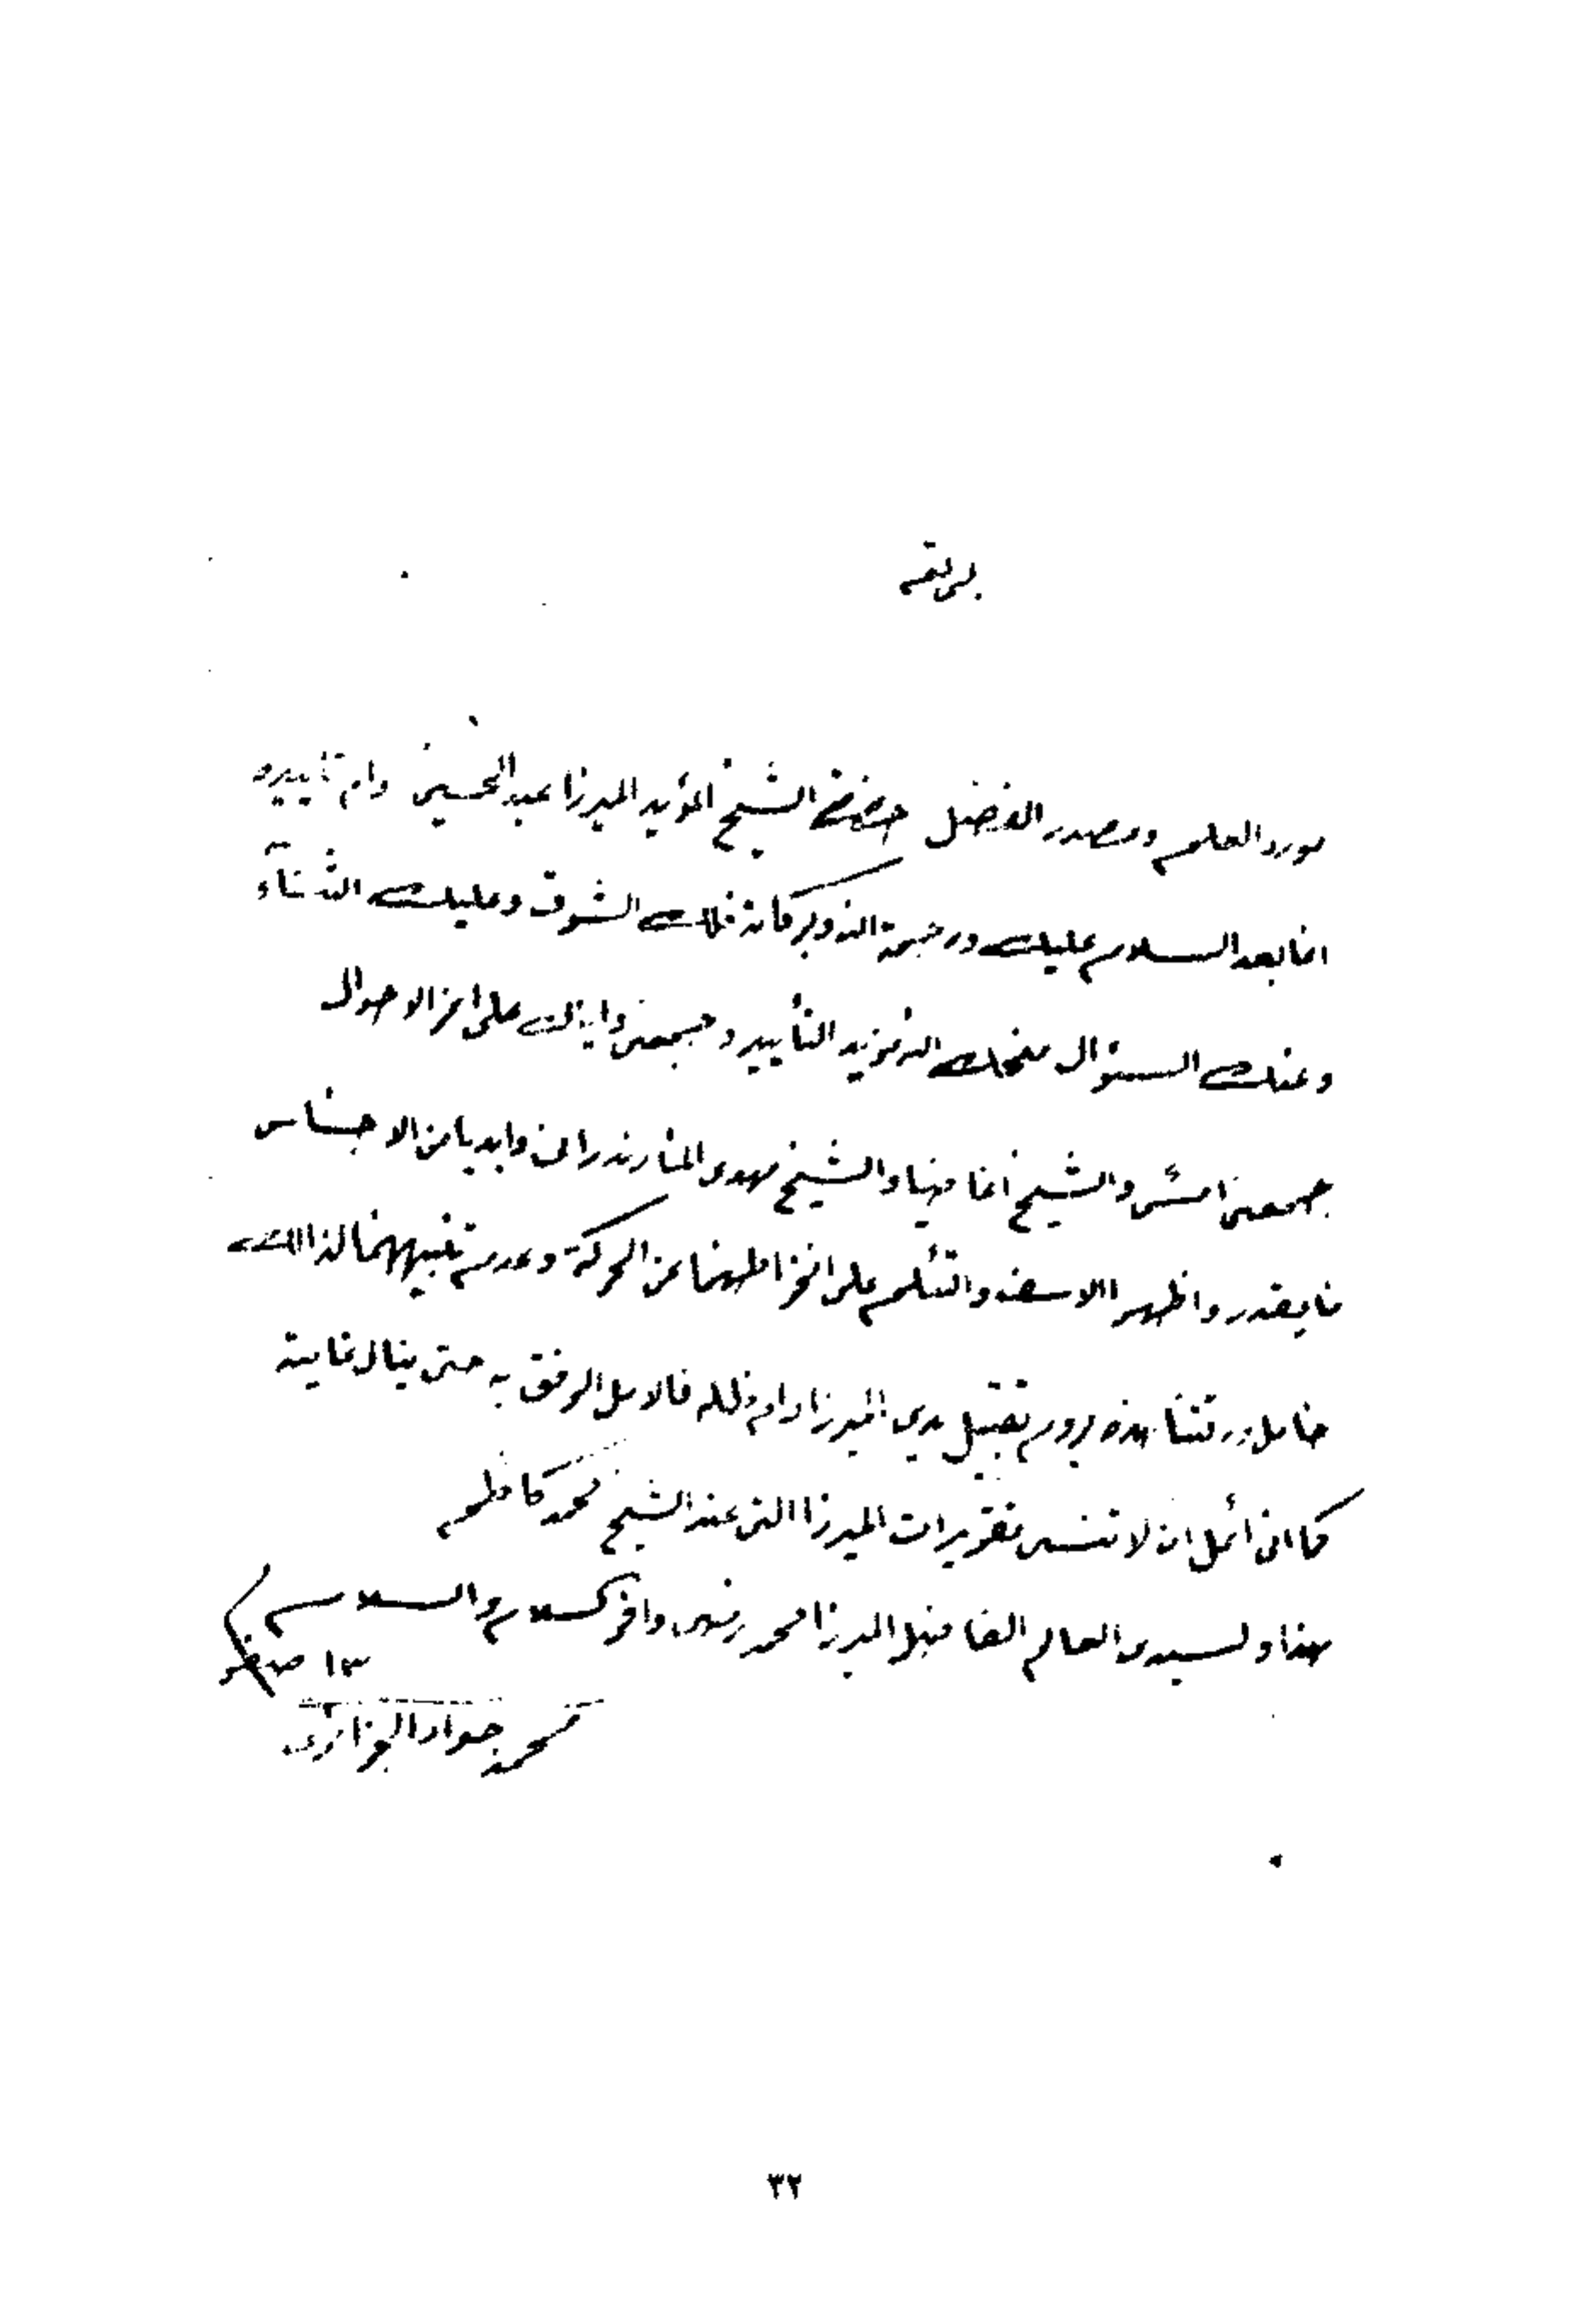 مورد العلم ومصدر الفضل حضرة الشيخ المؤيد الميرزا عبد الحسين دام تأييده
اما بعد السلام عليك ورحمة الله وبركاته فلك الشوق وعليك الثناء
وعنك السؤال منحك الله مزيد التأييد وجمعني واياك على اعز الاحوال
جمعني امس والشيخ اغا والشيخ مهدي المازندراني
ما يقدر واظهر الاسف والتألم على عن الحركة وعدم
حامل هذه يروم تقبيل يدي الميرزا دام ظله فالامل الرفق به حتى ينال غايته
كما اني آمل ان لا تنسى تقريرات الميرزا التي عند الشيخ محمد كاظم
هذا ولسيدي العالم الفاضل الميرزا محمد السلام والسلام
١٣ صفر
محمد جواد الجزائري
٣٢